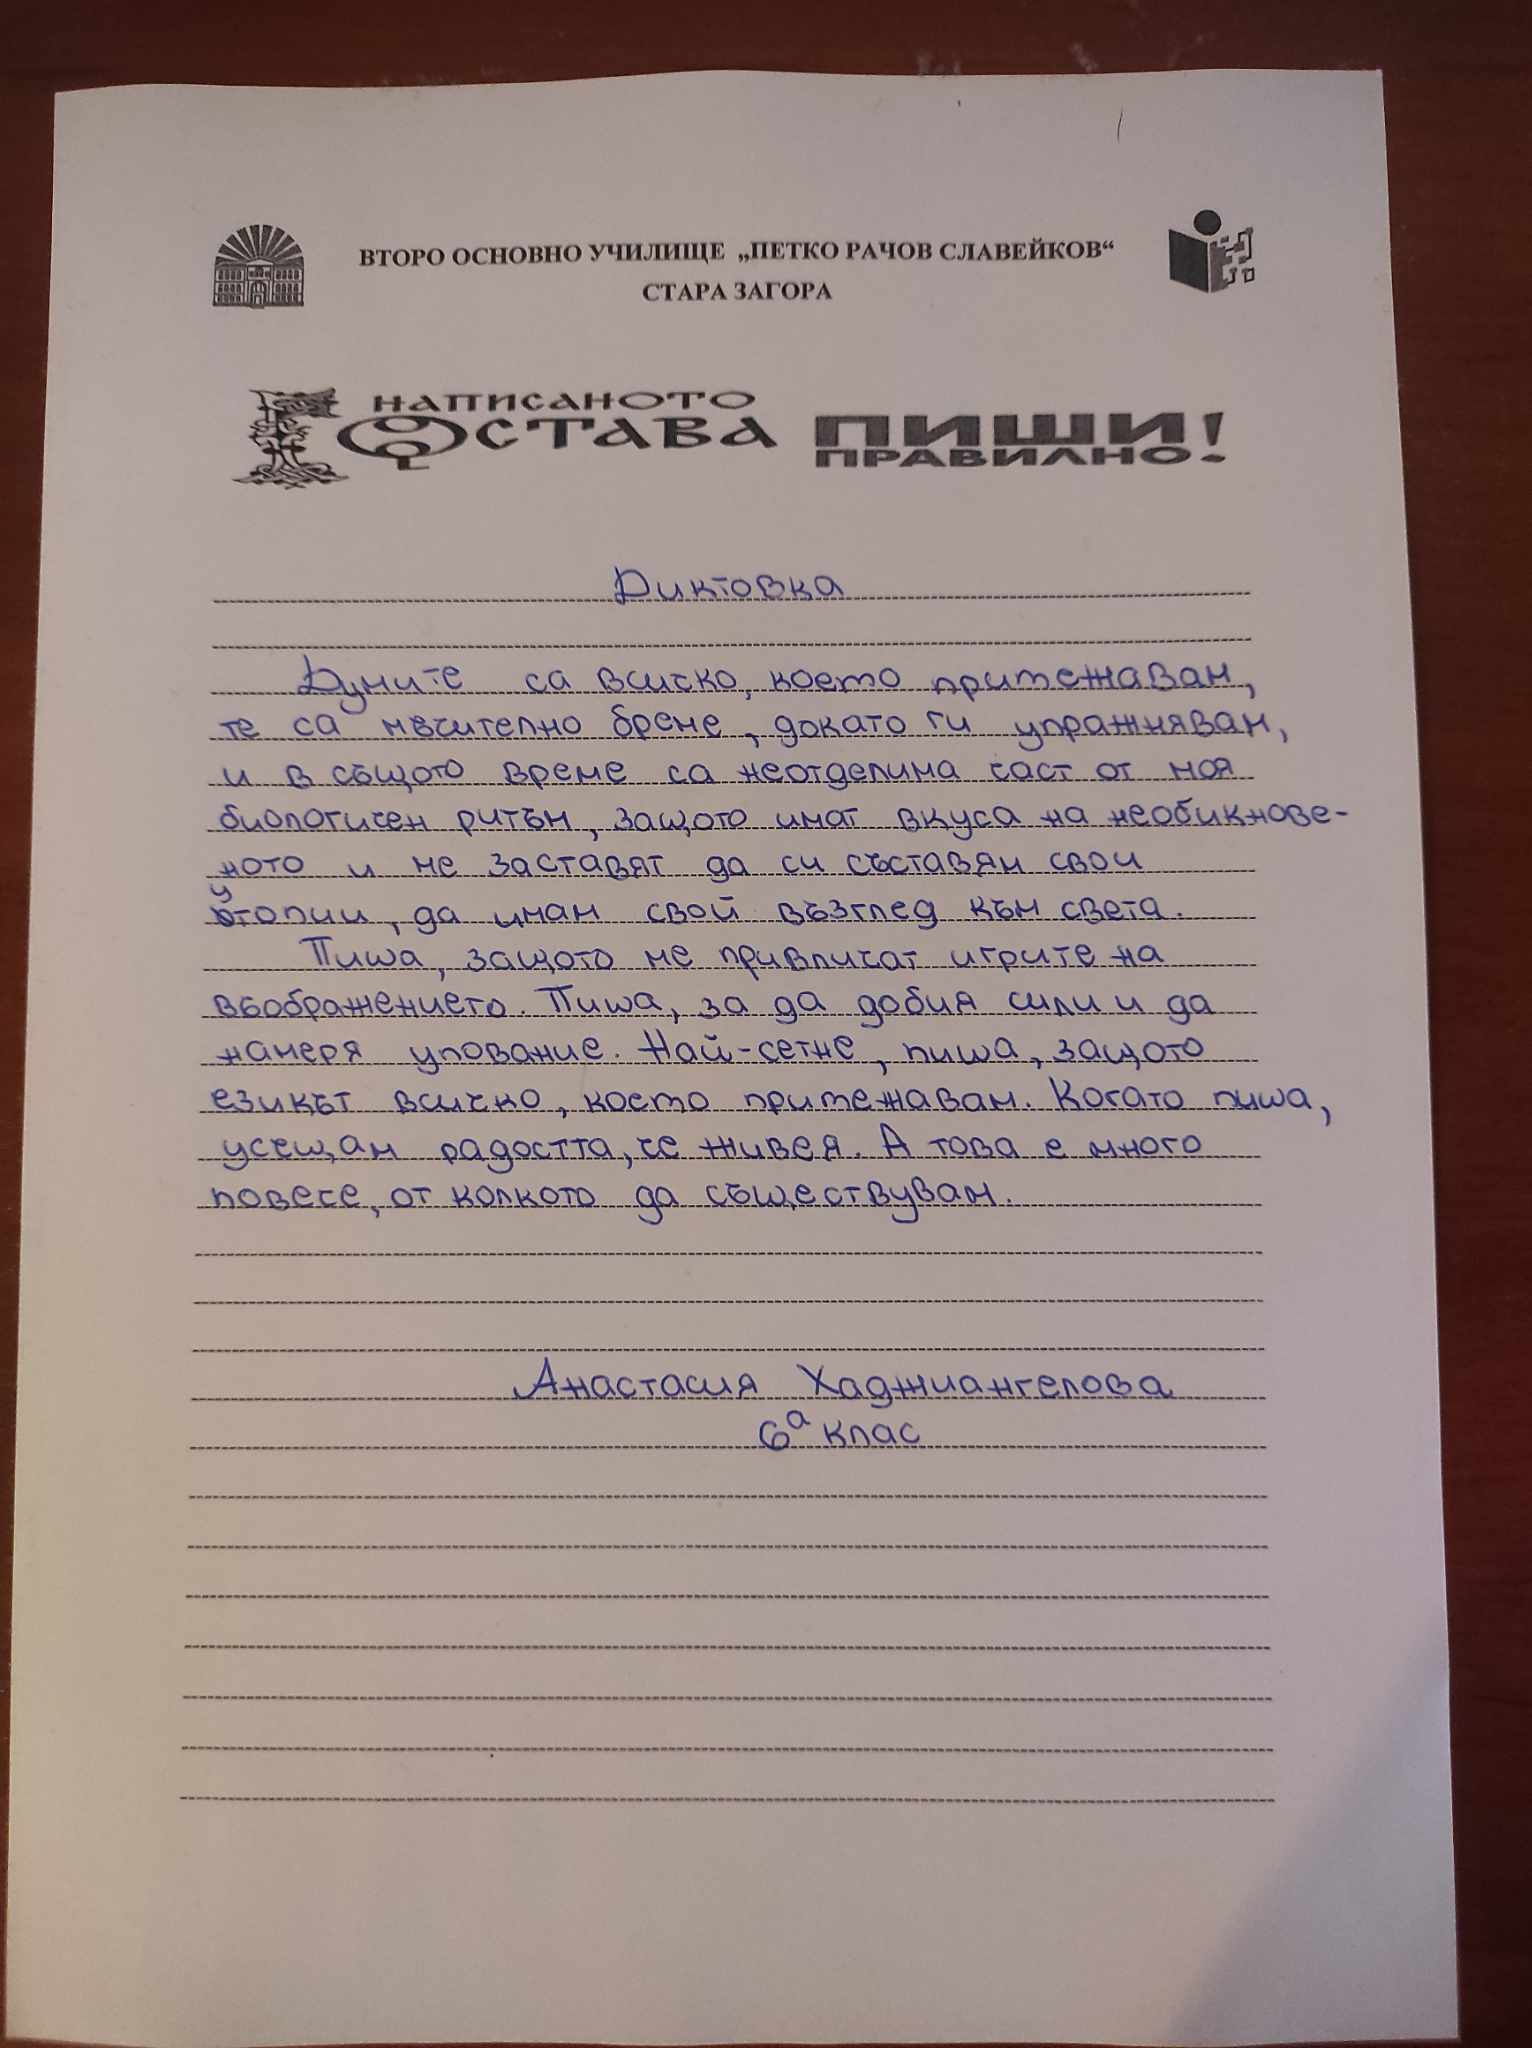 ВТОРО ОСНОВНО УЧИЛИЩЕ „ПЕТКО РАЧОВ СЛАВЕЙКОВ“
СТАРА ЗАГОРА
НАПИСАНОТО
ОСТАВА
ПИШИ
ПРАВИЛНО!
Диктовка
Думите са всичко, което притежавам,
те са мъчително бреме, докато ги упражнявам,
и в същото време са неотделима част от моя
биологичен ритъм, защото имат вкуса на необикнове-
ното и ме заставят да си съставям свои
утопии, да имам свой възглед към света.
Пиша, защото ме привличат игрите на
въображението. Пиша, за да добия сили и да
намеря упование. Най-сетне, пиша, защото
езикът всичко, което притежавам. Когато пиша,
усещам радостта, че живея. А това е много
повече, от колкото да съществувам.
Анастасия Хаджиангелова
6а клас